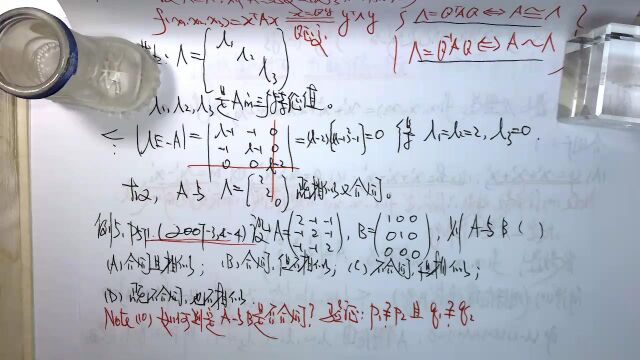 f(x₁,x₂,x₃)=xᵀAx x=Qy yᵀΛy { Λ=QᵀAQ ⇔ A≃Λ
Λ=Q⁻¹AQ ⇔ A∼Λ
Λ=(λ₁ λ₂ λ₃)
λ₁,λ₂,λ₃是A的三个特征值。
|λE-A|=|λ-1 -1 0; -1 λ-1 0; 0 0 λ-2|=(λ-2)[(λ-1)²-1]=0 得 λ₁=λ₂=2, λ₃=0.
故, A与Λ=[2 2 0]既相似又合同。
例5, P51,(2001-3,4-4)设A=(2 -1 -1; -1 2 -1; -1 -1 2), B=(1 0 0; 0 1 0; 0 0 0), 则A与B( )
(A)合同且相似; (B)合同, 但不相似; (C)不合同, 但相似;
(D)既不合同, 也不相似.
Note(10) 如何判定A与B是否合同? 验证: p₁≠p₂ 且 q₁≠q₂